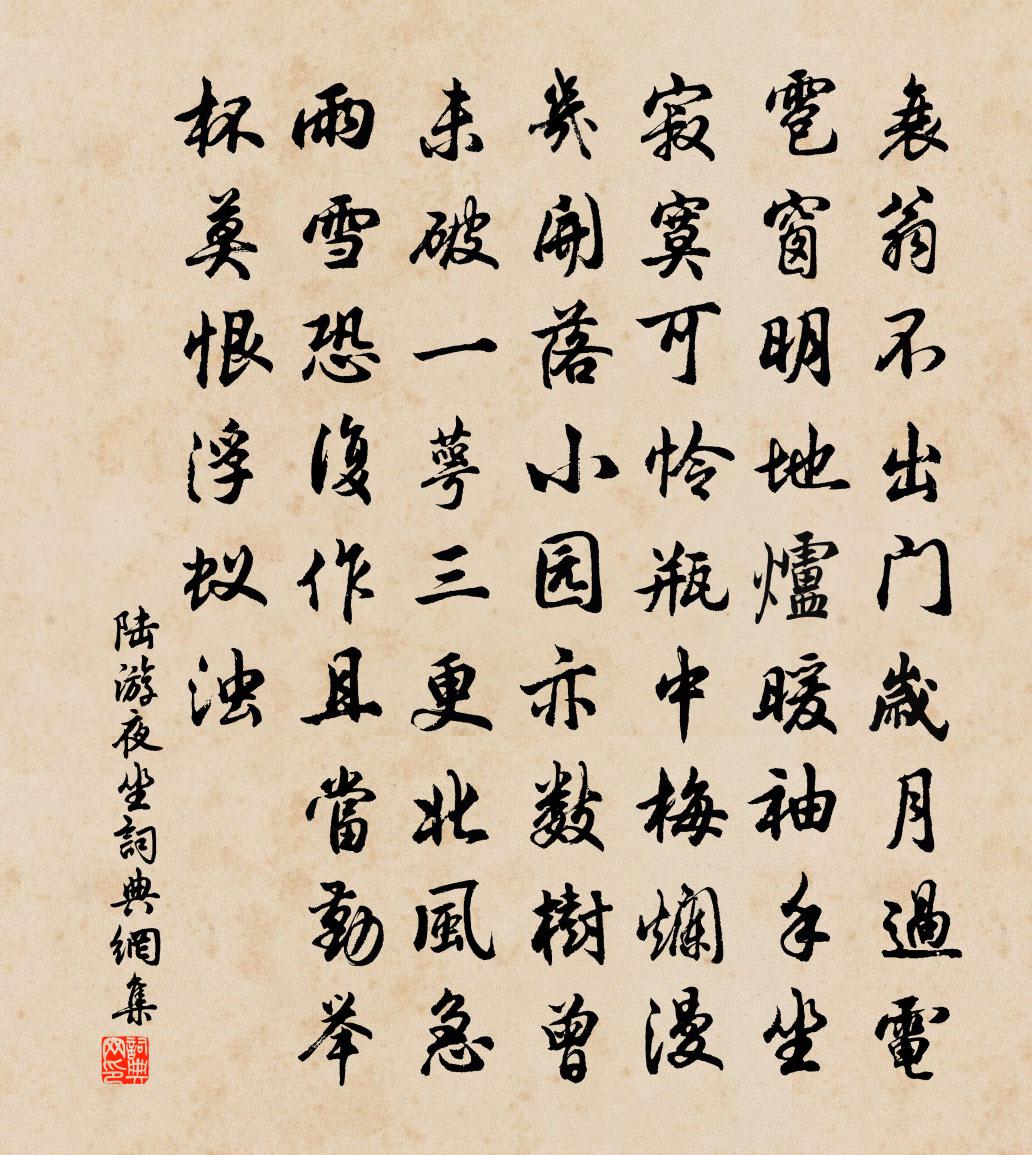 衰翁不出门歲月過電
雹窗明地爐暖袖手坐
寂寞可怜瓶中梅爛漫
幾開落小园亦數樹曾
未破一萼三更北風急
雨雪恐復作且當勤举
杯莫恨浮蚁浊
陆游夜坐詞典網集
詞典网印